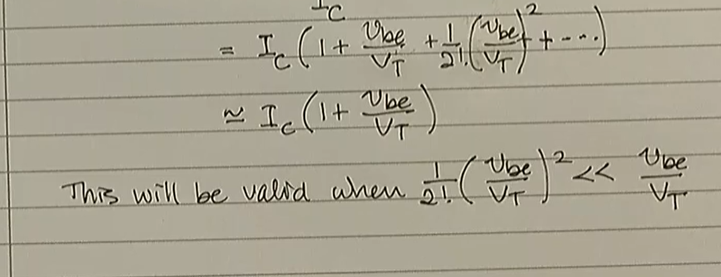 I_C
= I_C (1 + v_be/V_T + 1/2! (v_be/V_T)^2 + ---)
≃ I_C (1 + v_be/V_T)
This will be valid when 1/2! (v_be/V_T)^2 << v_be/V_T